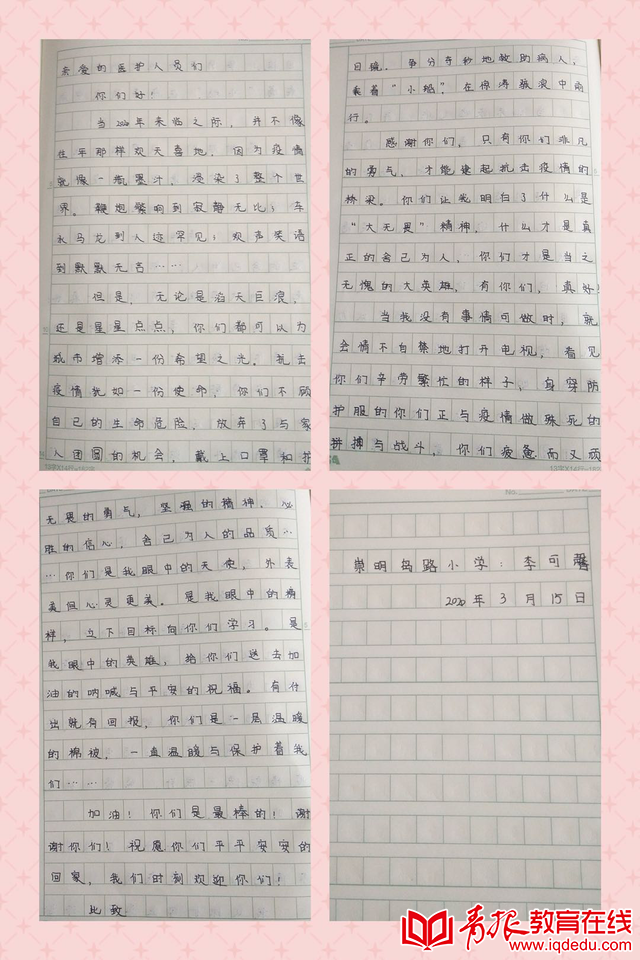 亲爱的医护人员们
你们好！
当2020年来临之际，并不像
往年那样欢天喜地，因为疫情
就像一瓶墨汁，浸染了整个世
界。鞭炮繁响到寂静无比；车
水马龙到人迹罕见；欢声笑语
到默默无言……
但是，无论是滔天巨浪，
还是星星点点，你们都可以为
城市增添一份希望之光。抗击
疫情犹如一份使命，你们不顾
自己的生命危险，放弃了与家
人团圆的机会，戴上口罩和护
目镜，争分夺秒地救助病人，
乘着“小船”在惊涛骇浪中前
行。
感谢你们，只有你们非凡
的勇气，才能建起抗击疫情的
桥梁。你们让我明白了什么是
“大无畏”精神，什么才是真
正的舍己为人，你们才是当之
无愧的大英雄，有你们，真好！
当我没有事情可做时，就
会情不自禁地打开电视，看见
你们辛劳繁忙的样子，身穿防
护服的你们正与疫情做殊死的
拼搏与战斗，你们疲惫而又顽
无畏的勇气，坚强的精神，必
胜的信心，舍己为人的品质…
…你们是我眼中的天使，外表
美但心灵更美。是我眼中的榜
样，立下目标向你们学习。是
我眼中的英雄，给你们送去加
油的呐喊与平安的祝福。有付
出就有回报，你们是一层温暖
的棉被，一直温暖与保护着我
们……
加油！你们是最棒的！谢
谢你们！祝愿你们平平安安的
回家，我们时刻欢迎你们！
此致
崇明岛路小学：李可馨
2020年3月15日
青报教育在线
www.iqdedu.com